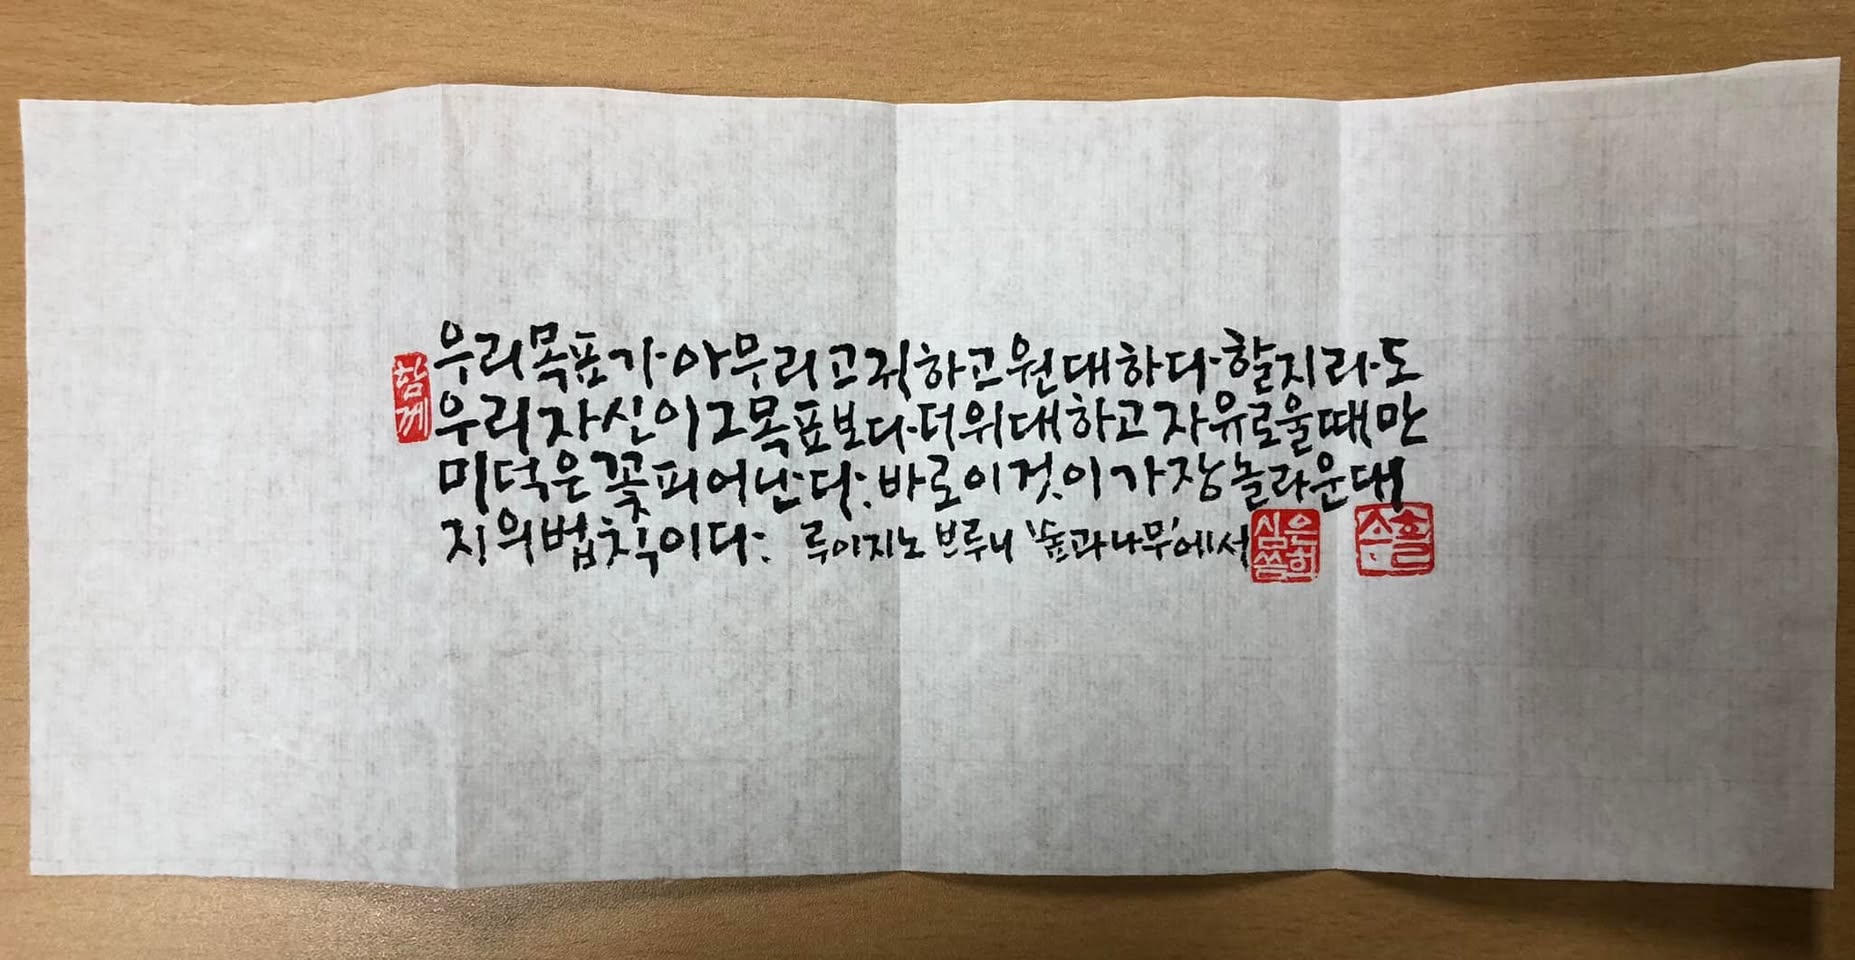 함께
우리 목표가 아무리 고귀하고 원대하다 할지라도
우리 자신이 그 목표보다 더 위대하고 자유로울 때만
미덕은 꽃피어난다. 바로 이것이 가장 놀라운 대
지의 법칙이다. 루이지노 브루니 '숲과 나무'에서
심은
희